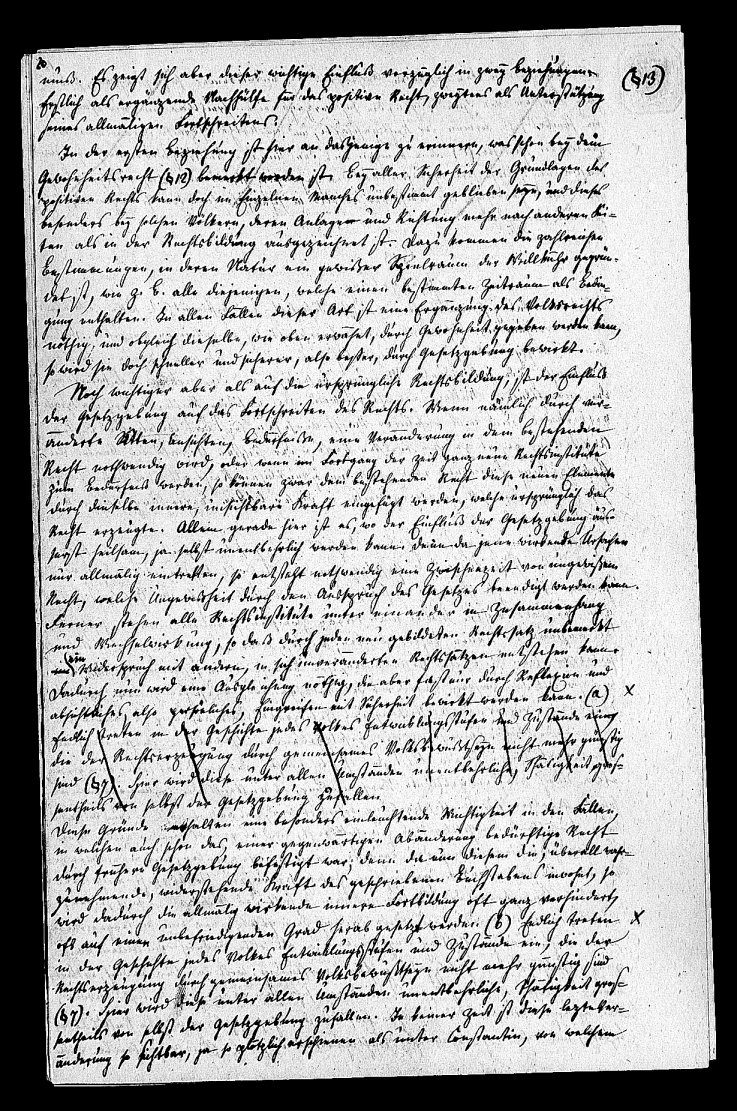 20
(§13)
muß. Es zeigt sich aber dieser wichtige Einfluß vorzüglich in zwey Beziehungen:
Erstlich als ergänzende Nachhülfe für das positive Recht, zweytens als Unterstützung
seines allmäligen Fortschreitens.
In der ersten Beziehung ist hier an dasjenige zu erinnern, was schon bey dem
Gewohnheitsrecht (§12) bemerkt worden ist. Bey aller Sicherheit der Grundlagen des
positiven Rechts kann doch im Einzelnen Manches unbestimmt geblieben seyn, und dieses
besonders bey solchen Völkern, deren Anlagen und Richtung mehr nach anderen Sei-
ten als in der Rechtsbildung ausgezeichnet ist. Dazu kommen die zahlreichen
Bestimmungen, in deren Natur ein gewisser Spielraum der Willkühr gegrün-
det ist, wie z. B. alle diejenigen, welche einen bestimmten Zeitraum als Bedin-
gung enthalten. In allen Fällen dieser Art ist eine Ergänzung des Volksrechts
nöthig, und obgleich dieselbe, wie oben erwähnt, durch Gewohnheit gegeben werden kann,
so wird sie doch schneller und sicherer, also besser, durch Gesetzgebung bewirkt.
Noch wichtiger aber als auf die ursprüngliche Rechtsbildung, ist der Einfluß
der Gesetzgebung auf das Fortschreiten des Rechts. Wenn nämlich durch ver-
änderte Sitten, Ansichten, Bedürfnisse, eine Veränderung in dem bestehenden
Recht nothwendig wird, oder wenn im Fortgang der Zeit ganz neue Rechtsinstitute
zum Bedürfniß werden, so können zwar dem bestehenden Recht diese neuen Elemente
durch dieselbe innere, unsichtbare Kraft eingefügt werden, welche ursprünglich das
Recht erzeugte. Allein gerade hier ist es, wo der Einfluß der Gesetzgebung äus-
serst heilsam, ja selbst unentbehrlich werden kann. Denn da jene wirkende Ursachen
nur allmälig eintreten, so entsteht nothwendig eine Zwischenzeit von ungewissem
Recht, welche Ungewißheit durch den Ausspruch des Gesetzes beendigt werden kann.
Ferner stehen alle Rechtsinstitute unter einander in Zusammenhang
und Wechselwirkung, so daß durch jeden neu gebildeten Rechtssatz unbemerkt
ein Widerspruch mit andern, in sich unveränderten Rechtssätzen entstehen kann.
Dadurch nun wird eine Ausgleichung nöthig, die aber fast nur durch Reflexion und
absichtliches, also persönliches, Eingreifen mit Sicherheit bewirkt werden kann. (a) x
Endlich treten in der Geschichte jedes Volkes Entwicklungsstufen und Zustände ein,
die der Rechtserzeugung durch gemeinsames Volksbewußtseyn nicht mehr günstig
sind (§7). Hier wird diese unter allen Umständen unentbehrliche Thätigkeit gros-
sentheils von selbst der Gesetzgebung zufallen.
Diese Gründe erhalten eine besonders einleuchtende Wichtigkeit in den Fällen,
in welchen auch schon das, einer gegenwärtigen Abänderung bedürftige Recht
durch frühere Gesetzgebung befestigt war; denn da nun diesem die, überall vor-
zunehmende, widerstehende Kraft des geschriebenen Buchstabens inwohnt, so
wird dadurch die allmälig wirkende innere Fortbildung oft ganz verhindert,
oft auf einen unbefriedigenden Grad herab gesetzt werden. (b) Endlich treten x
in der Geschichte jedes Volkes Entwicklungsstufen und Zustände ein, die der
Rechtserzeugung durch gemeinsames Volksbewußtseyn nicht mehr günstig sind
(§7). Hier wird diese unter allen Umständen unentbehrliche Thätigkeit gros-
sentheils von selbst der Gesetzgebung zufallen. In keiner Zeit ist diese letzte Ver-
änderung so sichtbar, ja so plötzlich erschienen als unter Constantin, von welchem